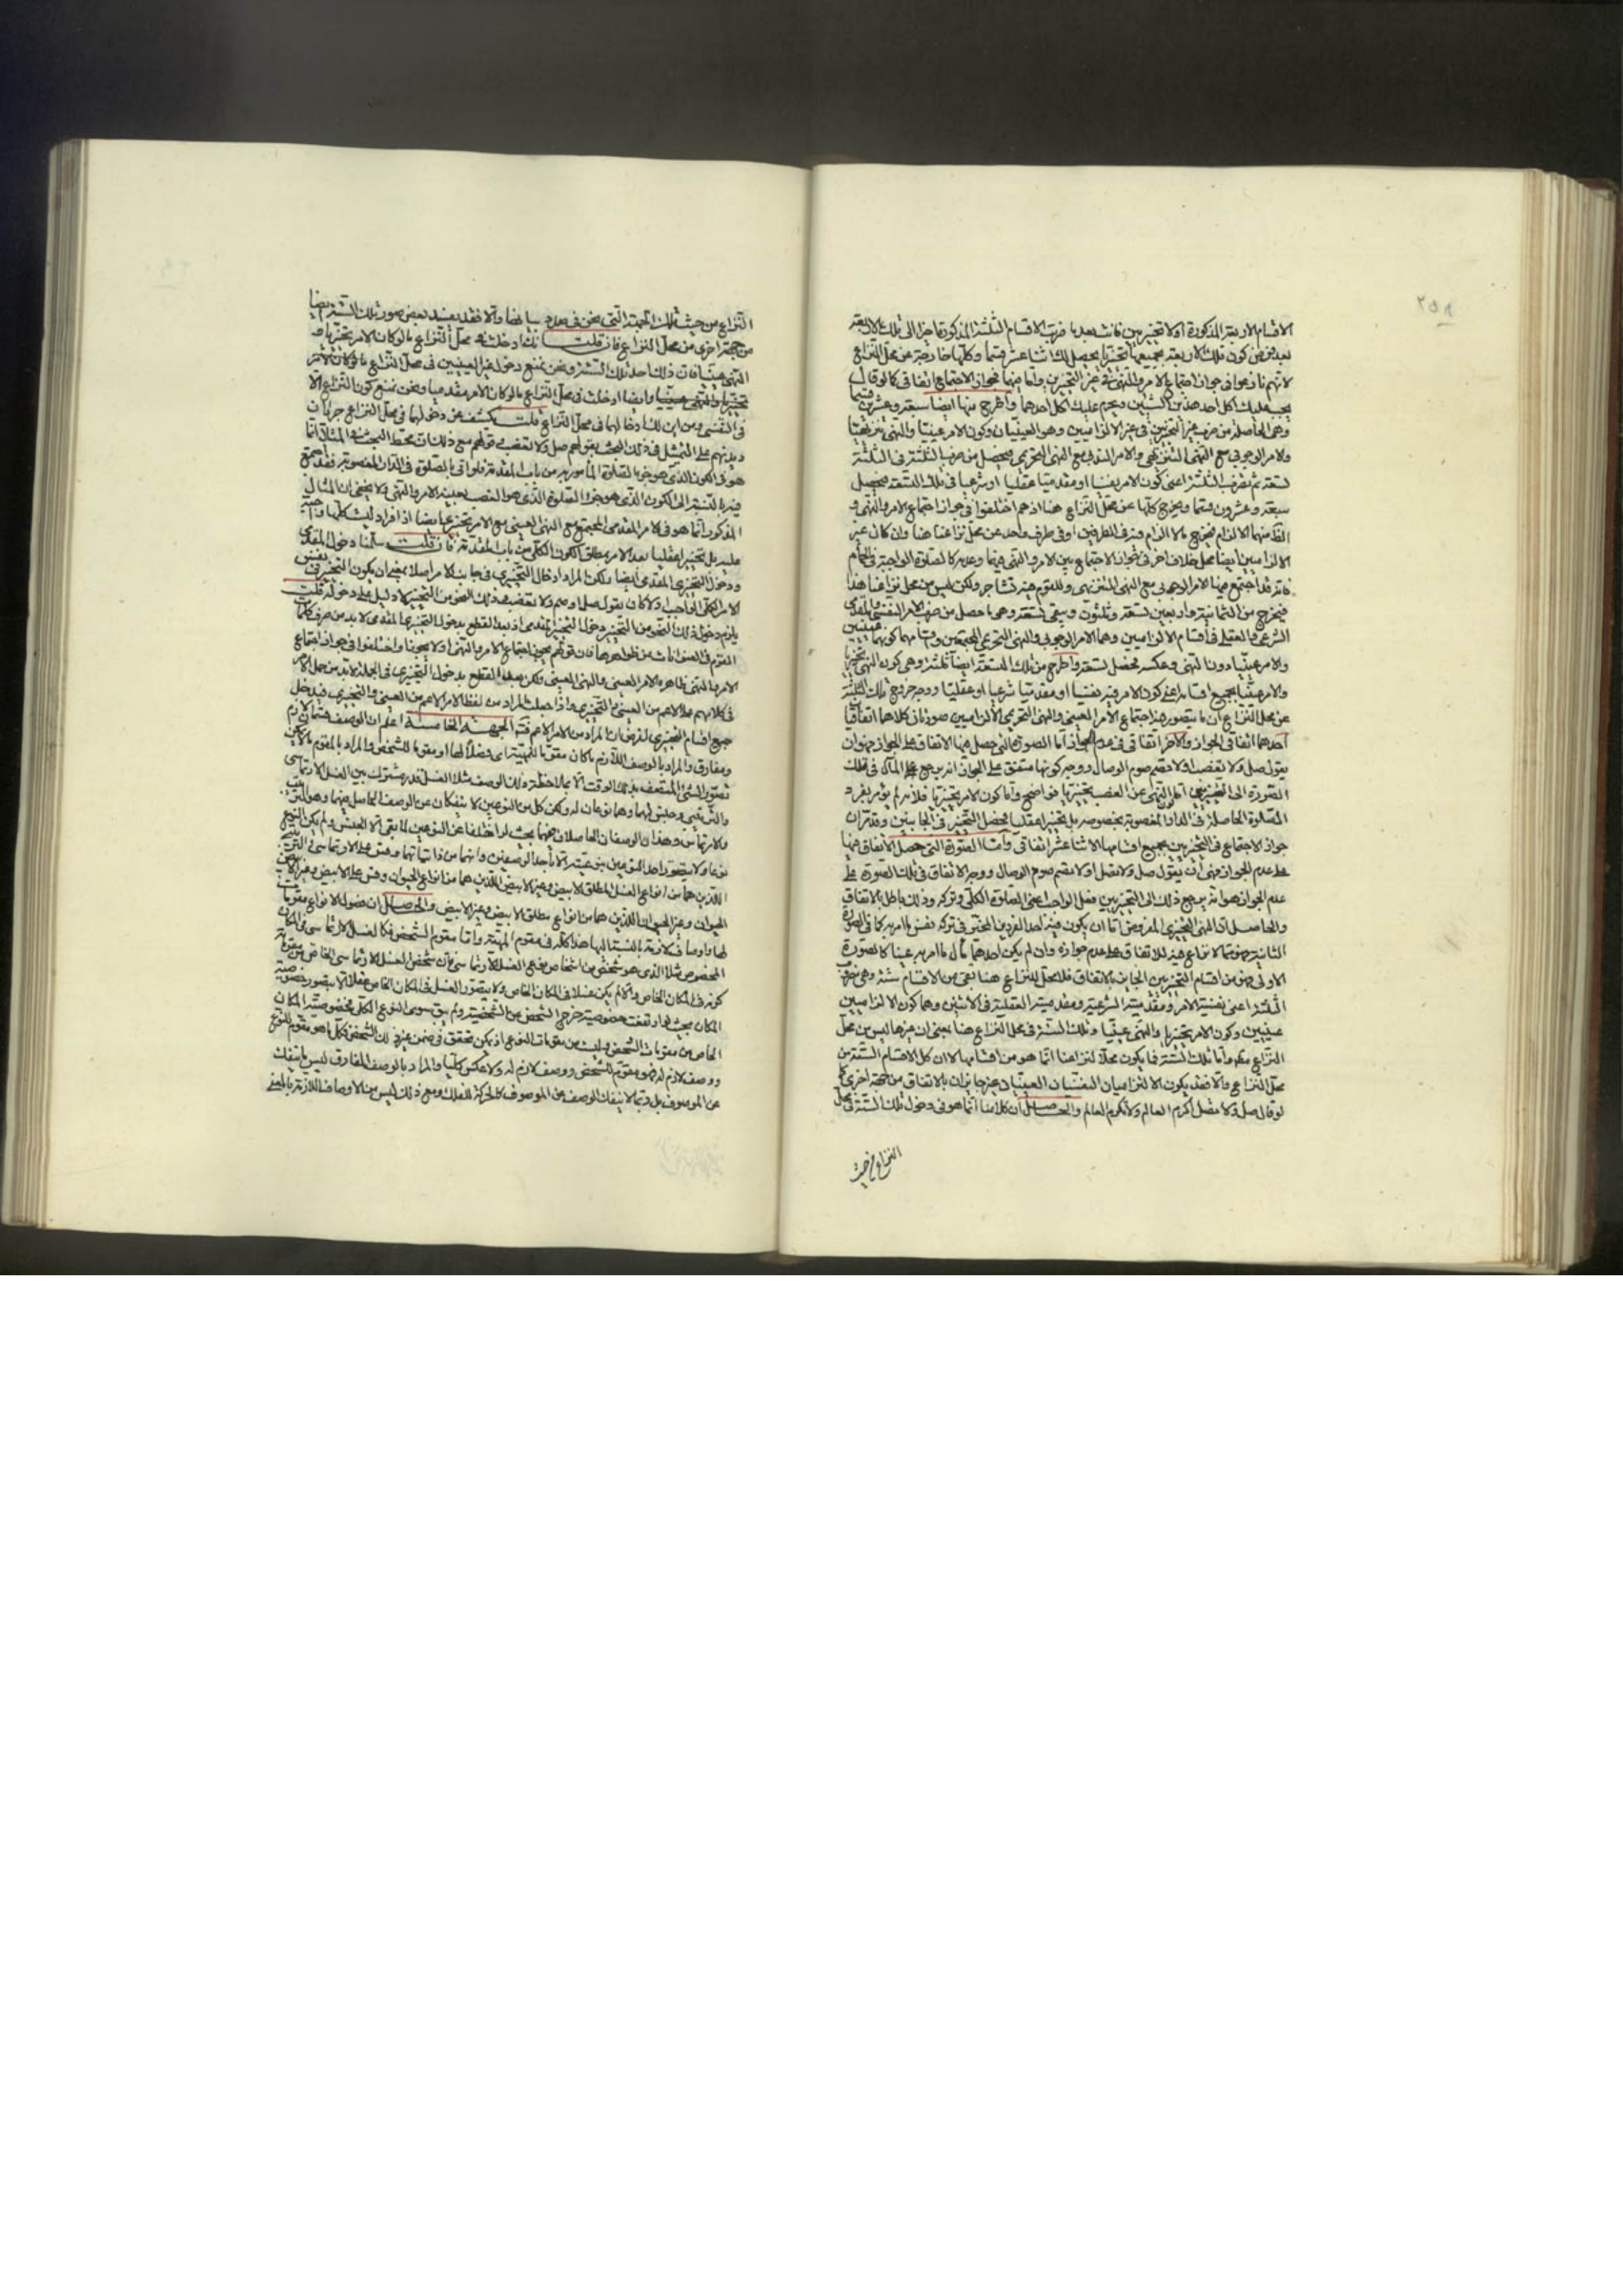 ٢٥٨
الاقسام الاربعة المذكورة اولا تخييريين فانت بعد ما ضربت الاقسام الثلثة المذكورة
بعد فرض كون تلك الاربعة بجميعها تخييريا يحصل لك اثنا عشر قسما وكلها خارجة عن محل النزاع
لانهم نازعوا في جواز اجتماع الامر والنهي في غير التخييريين واما فيهما فجواز الاجتماع اتفاقي كما لو قال
يجب عليك اكل احد هذين الشيئين ويحرم عليك اكل احدهما واطرح منها ايضا سبعة وعشرين قسما
وهي الحاصلة من ضرب غير التخييريين في غير الالزاميين وهو العينيان وكون الامر عينيا والنهي تخييريا
والامر الوجوبي مع النهي التنزيهي والامر الندبي مع النهي التحريمي يحصل من ضرب الثلثة في الثلثة
تسعة ثم تضرب الثلثة اعني كون الامر نفسيا او مقدميا عقليا او شرعيا في تلك التسعة يحصل
سبعة وعشرون قسما ويخرج كلها عن محل النزاع هنا اذ هم اختلفوا في جواز اجتماع الامر والنهي و
الالزاميين ايضا محل خلاف اخر في جواز الاجتماع بين الامر والنهي فيهما وعدمه كالصلوة الواجبة في الحمام
فانه قد اجتمع فيها الامر الوجوبي مع النهي التنزيهي وللقوم فيه تشاجر ولكن ليس من محل نزاعنا هذا
فيخرج من الثمانية واربعين تسعة وثلثون ويبقى تسعة وهي ما حصل من ضرب الامر النفسي والمقدمي
الشرعي والعقلي في اقسام الالزاميين وهما الامر الوجوبي والنهي التحريمي المجتمعين وقسامهما كونهما عينيين
والامر عينيا دون النهي وعكسه يحصل تسعة واطرح من تلك التسعة ايضا ثلثة وهي كون النهي تخييريا
والامر عينيا بجميع اقسامه اعني كون الامر فيه نفسيا او مقدميا شرعيا او عقليا ووجه خروج تلك الثلثة
عن محل النزاع ان ما يتصور فيه اجتماع الامر العيني والنهي التحريمي الالزاميين صورتان كلاهما اتفاقيان
احدهما اتفاقي في الجواز والاخر اتفاقي في عدم الجواز اما الصورة التي حصل فيها الاتفاق على الجواز فهو ان
يقول صل ولا تغصب او لا تصم صوم الوصال ووجه كونها متفق على الجواز انه يرجع على المآل في تلك
الصلوة الحاصلة في الدار المغصوبة بخصوصه بل تخييرا عقليا فحصل التخيير في الجانبين وقد مر ان
جواز الاجتماع في التخييريين بجميع اقسامها الاثنا عشر اتفاقي واما الصورة التي حصل الاتفاق فيها
على عدم الجواز فهي ان يقول صل ولا تصل او لا تصم صوم الوصال ووجه الاتفاق في تلك الصورة على
عدم الجواز هو انه يرجع ذلك الى التخييريين ففعل الواجب اعني الصلوة الكلي وتركه وذلك باطل بالاتفاق
والحاصل ان النهي التخييري المفروض اما ان يكون فيه احد الفردين المخير في تركه نفس المامور به كما في الصورة
الثانية فهو مما لا نزاع فيه للاتفاق على عدم جوازه وان لم يكن احدهما مآل المامور به عينا كالصورة
الاولى فهو من اقسام التخييريين الجايز بالاتفاق فلا محل للنزاع هنا بقي من الاقسام ستة وهي ضرب
الثلثة اعني نفسية الامر ومقدميته الشرعية ومقدميته العقلية في الاثنين وهما كون الالزاميين
عينيين وكون الامر تخييريا والنهي عينيا وتلك الستة في محل النزاع هنا بمعنى ان غيرها ليس من محل
النزاع قطعا واما تلك الستة فما يكون محلا لنزاعنا انما هو من اقسامها لا ان كل الاقسام الستة من
محل النزاع والا فقد يكون الالزاميان النفسيان العينيان غير جايزان بالاتفاق من جهة اخرى كما
لو قال صل ولا تصل اكرم العالم ولا تكرم العالم والحاصل ان كلامنا انما هو في دخول تلك الستة في محل
النزاع من حيث
النزاع من حيث تلك الجهة التي نحن في صدد بيانها والا فقد يفسد بعض صور تلك الستة ايضا
من جهة اخرى من محل النزاع فان قلت انك ادخلت في محل النزاع ما لو كان الامر تخييريا و
النهي عينيا فان ذلك احد تلك الستة ونحن نمنع دخول غير العينيين في محل النزاع ما لو كان الامر
تخييريا والنهي عينيا وايضا ادخلت في محل النزاع ما لو كان الامر مقدميا ونحن نمنع كون النزاع الا
في النفسي فمن اين لك ادخالهما في محل النزاع قلت يكشف عن دخولهما في محل النزاع جريان
ديدنهم على التمثيل في ذلك البحث بقولهم صل ولا تغصب فهم مع ذلك ان محط البحث في المثال انما
هو في الكون الذي هو جزء الصلوة المامور به من باب المقدمة فلو اتى بالصلوة في الدار المغصوبة فقد اجتمع
فيه بالنسبة الى الكون الذي هو جزء الصلوة الذي هو الغصب بعينه الامر والنهي ولا يخفى ان المثال
المذكور انما هو في الامر المقدمي المجتمع مع النهي العيني مع الامر تخييريا ايضا اذ افراد ليس كلها واجبة
عليه بل تخييرا عقليا بعد الامر بمطلق الكون الكلي من باب المقدمة فان قلت سلمنا دخول المقدمي
ودخول التخييري المقدمي ايضا ولكن المراد ادخال التخييري في جانب الامر اصلا بمعنى ان يكون التخيير في نفس
الامر الكلي الواجب ولا كان يقول صل او صم ولا تغصب في ذلك النحو من التخيير لا دليل على دخوله قلت
يلزم دخول ذلك النحو من التخيير دخول التخيير المقدمي اذ بعد القطع بدخول التخيير المقدمي لا بد من صرف كلمات
القوم في العنوانات عن ظواهرها فان قولهم يجوز اجتماع الامر والنهي او لا يجوز او اختلفوا في جواز اجتماع
الامر والنهي ظاهره الامر العيني والنهي العيني ولكن بعد القطع بدخول التخييري في الجملة لا بد من حمل الامر
في كلامهم على الاعم من العيني والتخييري واذا حملت المراد من لفظ الامر الاعم من العيني والتخييري فيدخل
جميع اقسام التخييري لفرض ان المراد من الامر الاعم فتدبر الجهة الخامسة اعلم ان الوصف قسمان لازم
ومفارق والمراد بالوصف اللازم ما كان مقوما للمهية اي فصلا لها او مقوما للشخص والمراد بالمقوم ما لا يمكن
تصور الشيء المتصف بذلك الوقت الا بملاحظة ذلك الوصف مثلا الغسل قدر مشترك بين الغسل الارتماسي
والترتيبي وجنس لهما وهما نوعان له ولكن كل من النوعين لا ينفكان عن الوصف الحاصل فيهما وهو الترتيب
والارتماس وهذان الوصفان الحاصلان فيهما بحيث لو اختلفا عن النوعين لما بقي الا الجنس ولم يكن النوع
نوعا ولا يتصور احد النوعين بنوعيته الا باحد الوصفين وانهما من ذاتياتها وقس على الارتماسي والترتيبي
اللذين هما من انواع الغسل المطلق الابيض وغير الابيض اللذين هما من انواع الحيوان وقس على الابيض وغير الابيض
الحيوان وغير الحيوان اللذين هما من انواع مطلق الابيض وغير الابيض والحاصل ان فصول الانواع مقومات
لها واوصاف لازمة بالنسبة اليها هذا كله في مقوم المهية واما مقوم الشخص فكالغسل الارتماسي في المكان
المخصوص مثلا الذي هو شخص من اشخاص نوع الغسل الارتماسي فان شخص الغسل الارتماسي الخاص من مقوماته
كونه في المكان الخاص والا لم يكن غسلا في المكان الخاص ولا يتصور الغسل في المكان الخاص عقلا الا بتصور خصوصية
المكان بحيث لو ارتفعت خصوصيته خرج الشخص عن الشخصية ولم يبق سوى النوع الكلي فخصوصية المكان
الخاص من مقومات الشخص وليست من مقومات النوع اذ يمكن تحققه في ضمن غير ذلك الشخص فكلما هو مقوم للنوع
ووصف لازم له فهو مقوم للشخص ووصف لازم له ولا عكس كليا والمراد بالوصف المفارق ليس ما ينفك
عن الموصوف بل ربما لا ينفك الوصف عن الموصوف كالحركة للفلك ومع ذلك ليس من الاوصاف اللازمة بالمعنى